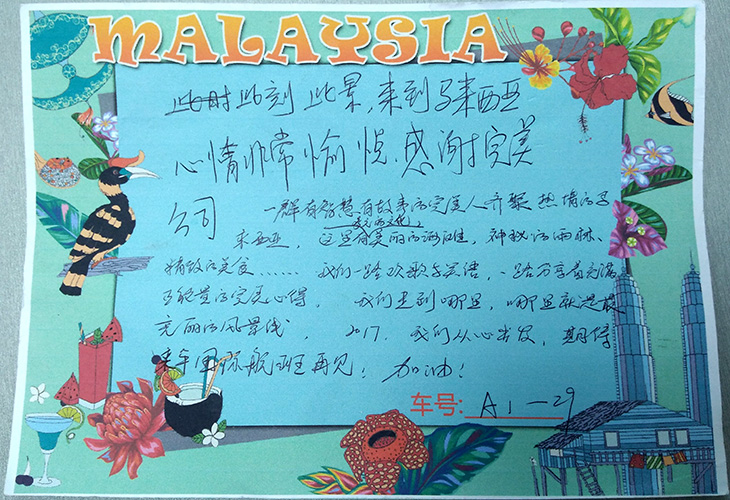 MALAYSIA
此时此刻 此景，来到马来西亚
心情非常愉悦.感谢完美
公司 一群有智慧有故事的完美人齐聚热情的马
多元的文化，
来西亚，这里有美丽的海滩，神秘的雨林、
精致的美食……我们一路欢歌与笑语，一路分享着充满
了能量的完美心得，我们走到哪里，哪里就是最
亮丽的风景线，2017.我们从心出发，期待
来年国际航班再见！加油！
车号: A1-29